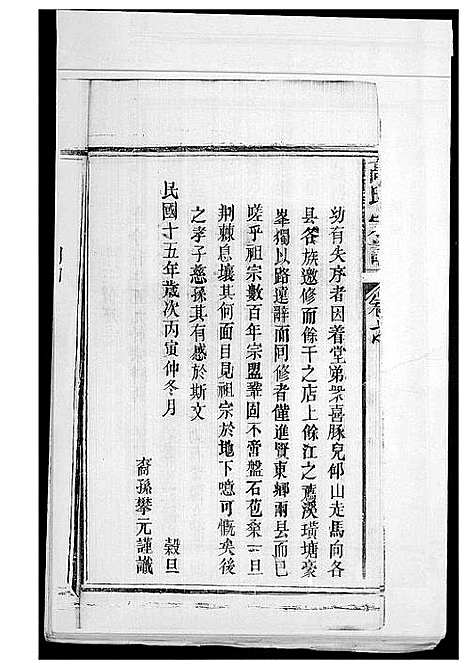 幼有失序者因着堂弟衆喜豚兒仰山走馬向各
縣各族邀修而餘干之店上餘江之蔫溪璜塘豪
峯獨以路遠辭而同修者僅進賢東鄉兩縣而已
嗟乎祖宗數百年宗盟鞏固不啻盤石苞桑一旦
荆棘息壤其何面目見祖宗於地下噫可慨矣後
之孝子慈孫其有感於斯文
民國十五年歲次丙寅仲冬月 穀旦
裔孫攀元謹識